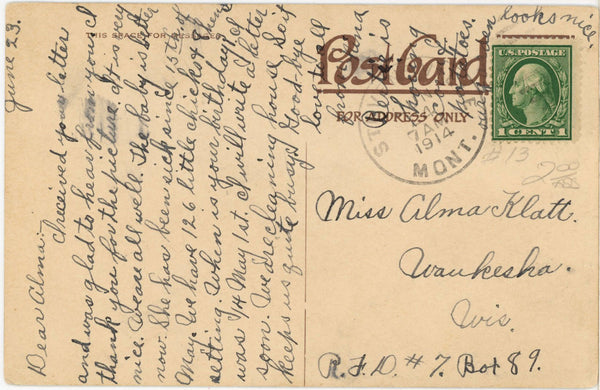 June 23.
Dear Alma:-
I received your letter
and was glad to hear from you. I
thank you for the picture. It is very
nice. We are all well. The baby is better
now. She has been sick since 15th of
May. We have 126 little chickens & 6
setting. When is your birthday? I
was 14 May 1st. I will write a letter
soon. We are cleaning house so it
keeps us quite busy. Good-bye
love to all
from
is
hoeing
potatoes.
looks nice.
THIS SPACE FOR MESSAGES
Post Card
FOR ADDRESS ONLY
7 AM
1914
MONT.
U.S. POSTAGE
1 CENT 1
#13
2.00
Miss Alma Klatt.
Waukesha.
Wis.
R.F.D. #7. Box 89.